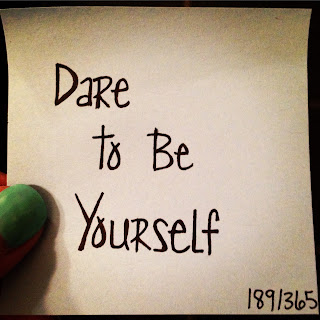 Dare
to Be
Yourself
189/365